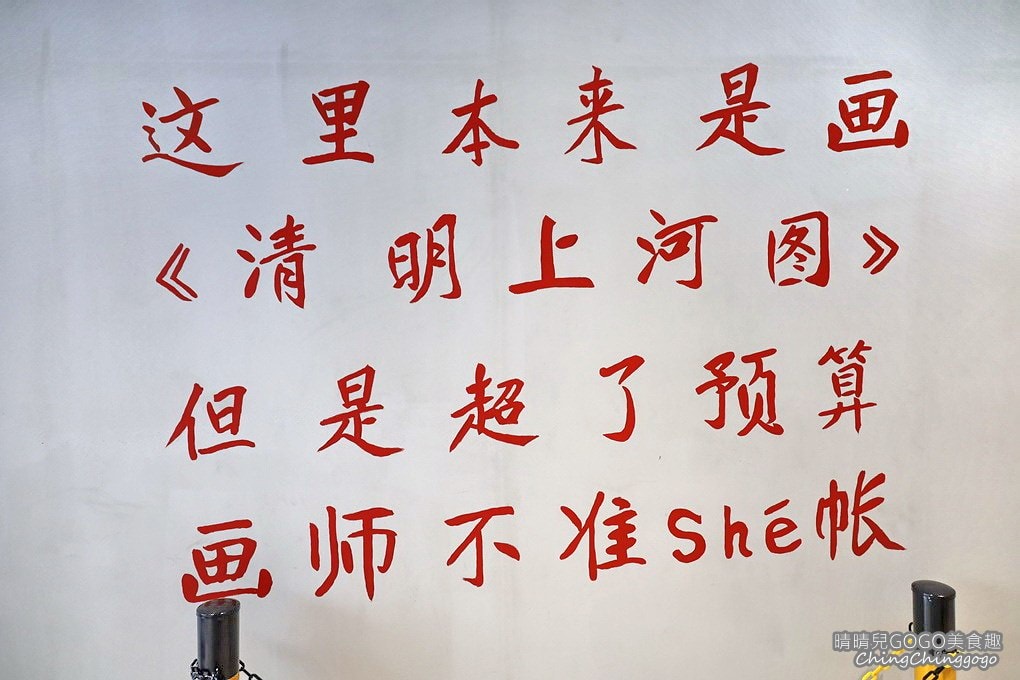 这里本来是画
《清明上河图》
但是超了预算
画师不准Shé帐
晴晴兒GOGO美食趣
ChingChinggogo